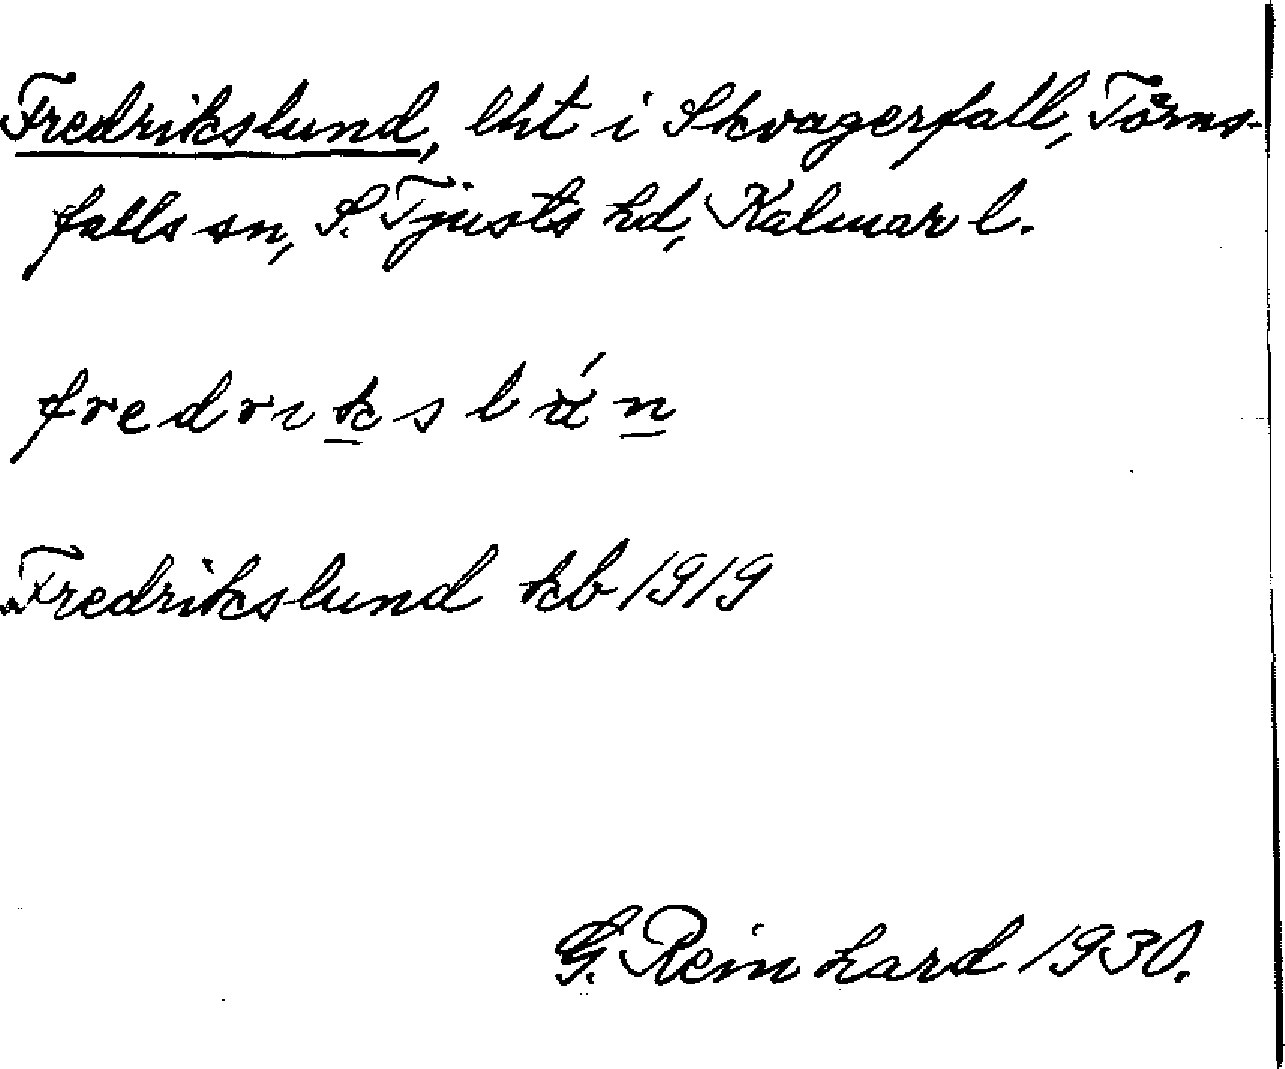 Fredrikslund, lht i Skvagerfall, Törns-
falls sn, S. Tjusts hd, Kalmar l.
fredrikslún
Fredrikslund kb 1919
G. Reinhard 1930.